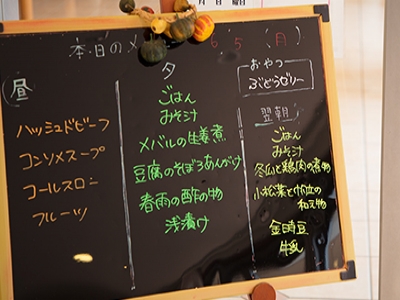 月 日 曜日
本日のメ
6 5 (月)
昼
ハッシュドビーフ
コンソメスープ
コールスロー
フルーツ
夕
ごはん
みそ汁
メバルの生姜煮
豆腐のそぼろあんかけ
春雨の酢の物
浅漬け
おやつ
ぶどうゼリー
翌朝
ごはん
みそ汁
冬瓜と鶏肉の煮物
小松菜と竹輪の
和え物
金時豆
牛乳